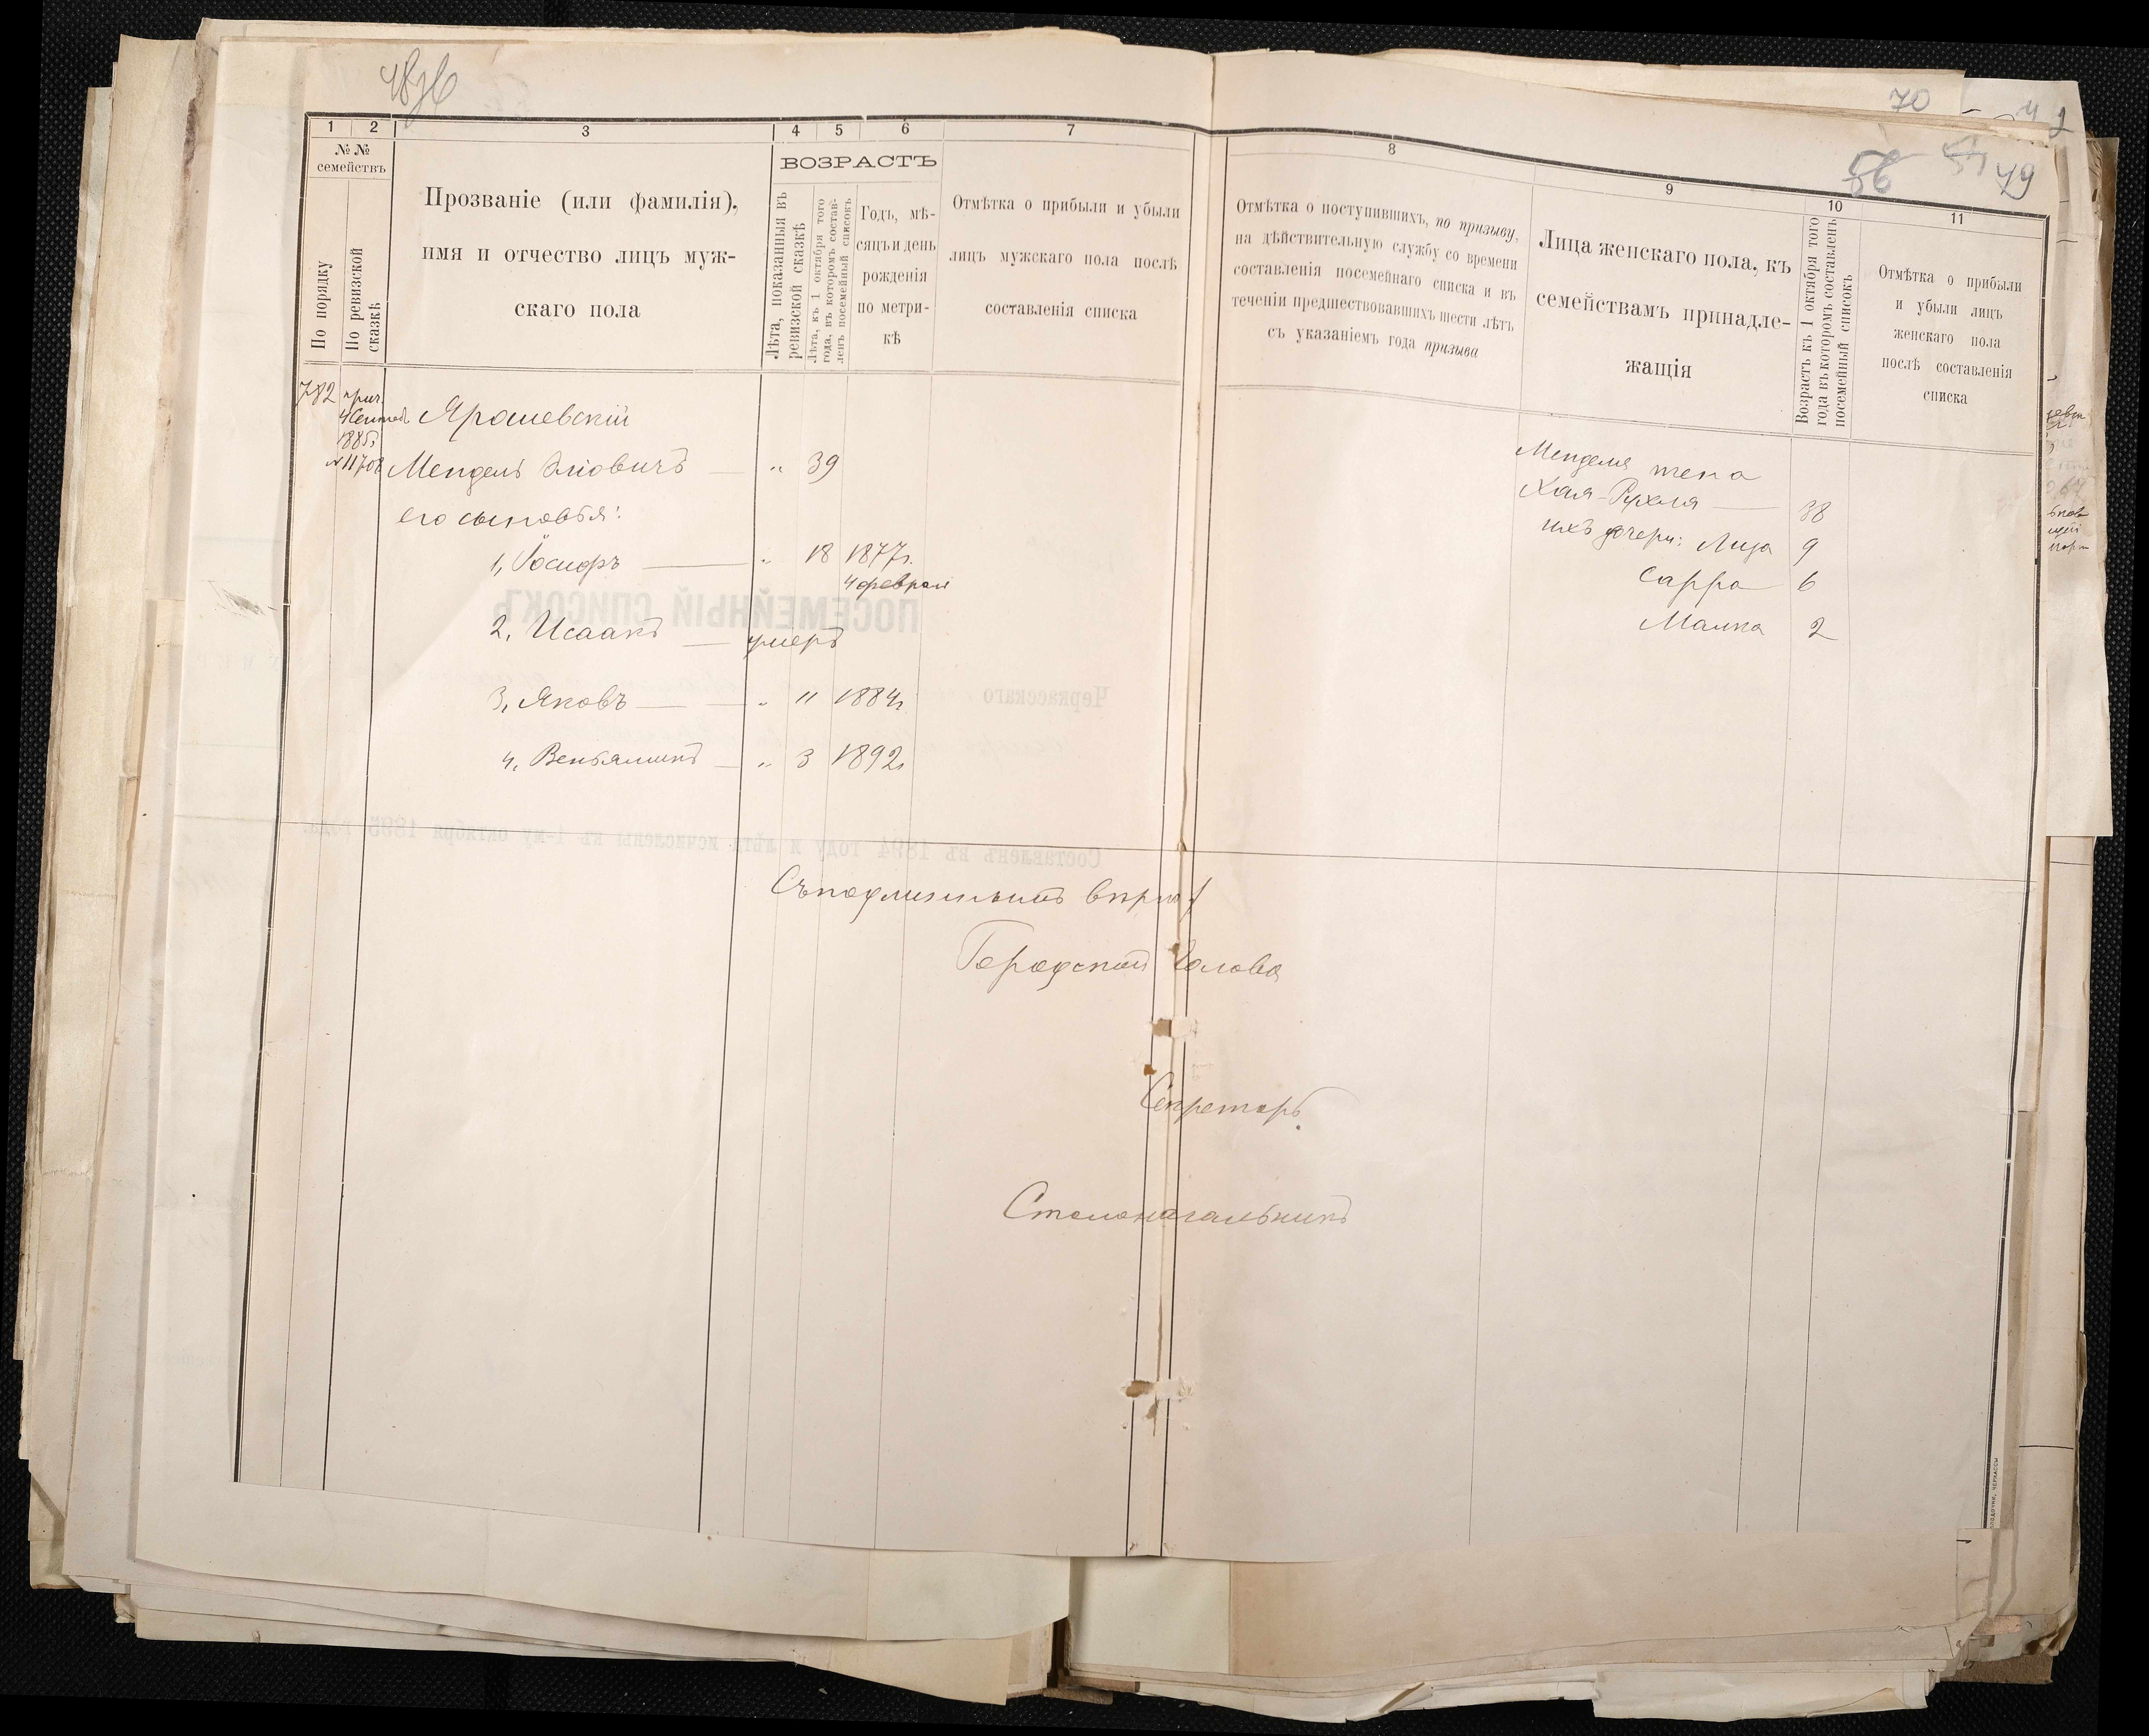 48 об
70
56
51
49
1
2
3
4
5
6
7
8
9
10
11
№ №
семействъ
По порядку
По ревизской
сказкѣ
Прозваніе (или фамилія),
имя и отчество лицъ муж-
скаго пола
ВОЗРАСТЪ
Лѣта, показанныя въ
ревизской сказкѣ
Лѣта, къ 1 октября того
года, въ которомъ состав-
ленъ посемейный списокъ
Годъ, мѣ-
сяцъ и день
рожденія
по метри-
кѣ
Отмѣтка о прибыли и убыли
лицъ мужскаго пола послѣ
составленія списка
Отмѣтка о поступившихъ, по призыву,
на дѣйствительную службу со времени
составленія посемейнаго списка и въ
теченіи предшествовавшихъ шести лѣтъ
съ указаніемъ года призыва
Лица женскаго пола, къ
семействамъ принадле-
жащія
Возрастъ къ 1 октября того
года въ которомъ составленъ
посемейный списокъ
Отмѣтка о прибыли
и убыли лицъ
женскаго пола
послѣ составленія
списка
782
прич.
4 Сентяб.
1885г.
№ 11708
Ярошевскій
Мендель Эліовичъ — „ 39
его сыновья:
1, Іосифъ — „ 18 1877г.
4 февраля
2, Исаакъ — умеръ
3, Яковъ — „ 11 1884г.
4, Веньяминъ — „ 3 1892г.
Менделя жена
Хая-Рухля — 38
ихъ дочери: Лиза 9
Сарра 6
Малка 2
ПОСЕМЕЙНЫЙ СПИСОКЪ
Черкасскаго
Составленъ въ 1894 году и лѣта исчислены къ 1-му октября 1895 года.
Съ подлиннымъ вѣрно:
Городской Голова
Секретарь
Столоначальникъ